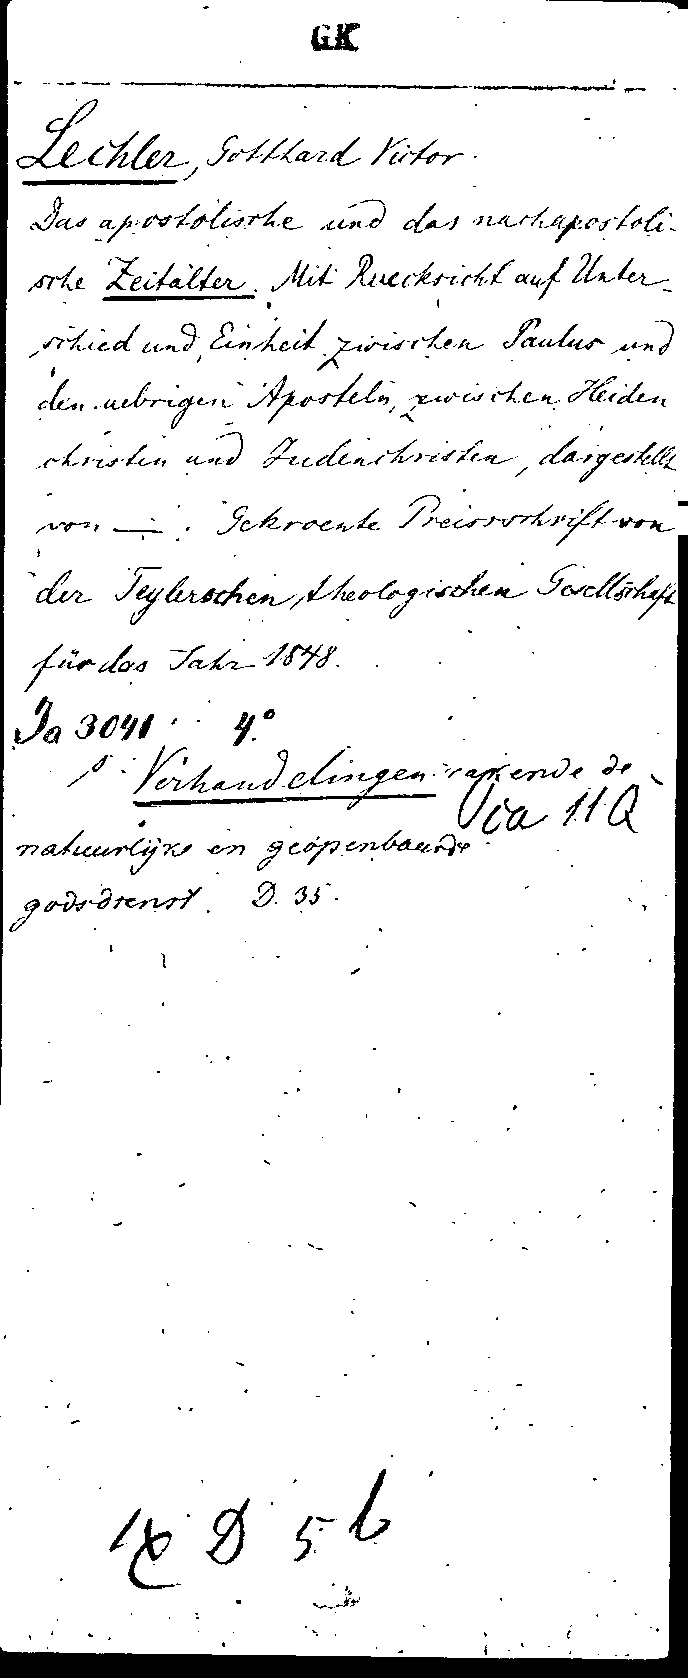 GK
Lechler, Gotthard Victor.
Das apostolische und das nachapostoli-
sche Zeitalter. Mit Ruecksicht auf Unter-
schied und Einheit zwischen Paulus und
den uebrigen Aposteln, zwischen Heiden
christen und Judenchristen, dargestellt
von —. Gekroente Preisschrift von
der Teylerschen theologischen Gesellschaft
für das Jahr 1848.
Ia 3041 4°
Verhandelingen rakende de
ca 11 Q
natuurlijke en geopenbaarde
godsdienst. D. 35.
D 5 b